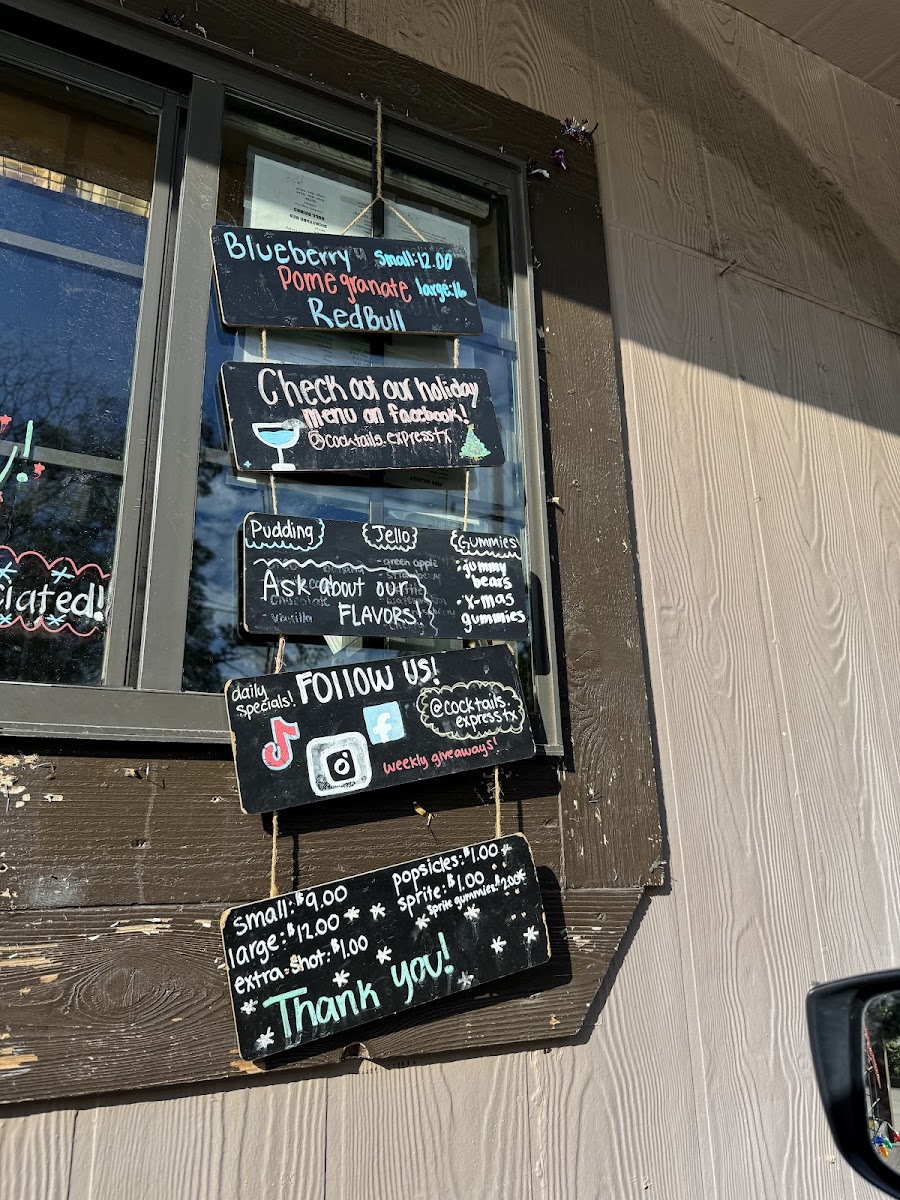 Blueberry small: 12.00
Pomegranate large: 16
RedBull
Check out our holiday
menu on facebook!
@cocktails.expresstx
Pudding Jello Gummies
Ask about our
FLAVORS!
- green apple
Chocolate
- Vanilla
• gummy
bears
• X-mas
gummies
daily
specials!
FOLLOW US!
@cocktails.
expresstx
weekly giveaways!
small: $9.00
large: $12.00
extra shot: $1.00
popsicles: $1.00
sprite: $1.00
sprite gummies: $2.00
Thank you!
ciated!